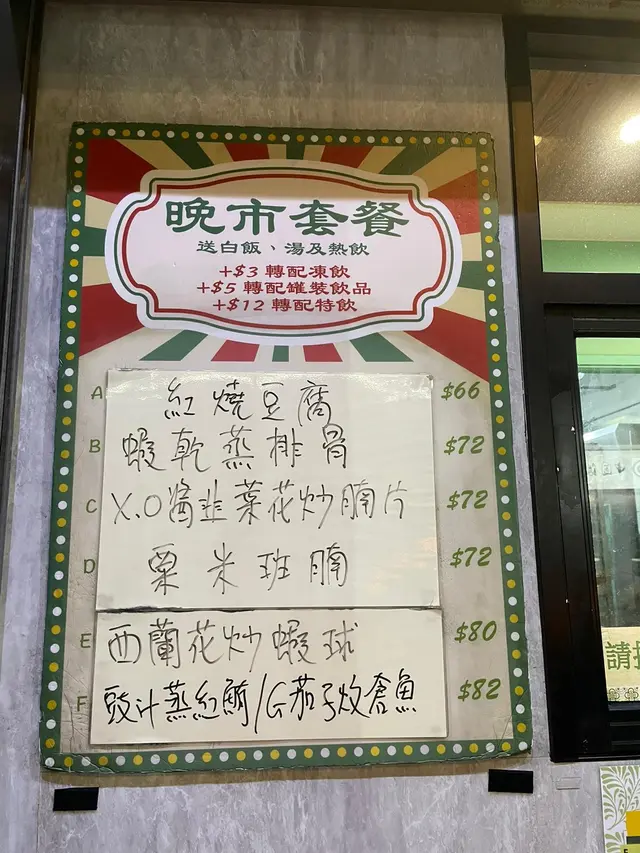 晚市套餐
送白飯、湯及熱飲
+$3 轉配凍飲
+$5 轉配罐裝飲品
+$12 轉配特飲
A 紅燒豆腐 $66
B 蝦乾蒸排骨 $72
C X.O醬韭菜花炒腩片 $72
D 粟米班腩 $72
E 西蘭花炒蝦球 $80
F 豉汁蒸紅鮹/G茄子炆倉魚 $82
請